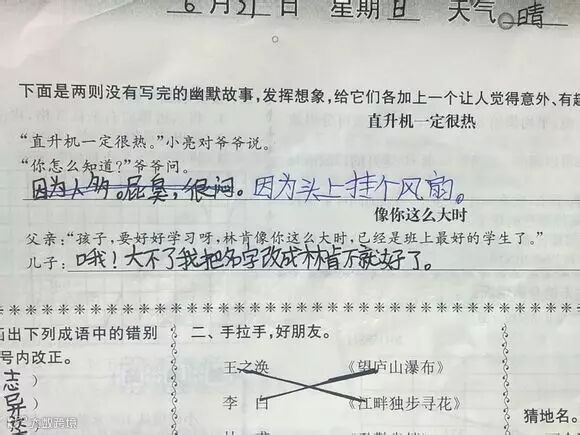 6月31日 星期日 天气 晴
下面是两则没有写完的幽默故事,发挥想象,给它们各加上一个让人觉得意外、有趣
直升机一定很热
“直升机一定很热。”小亮对爷爷说。
“你怎么知道?”爷爷问。
因为人多。屁臭,很闷。因为头上挂个风扇。
像你这么大时
父亲:“孩子,要好好学习呀,林肯像你这么大时,已经是班上最好的学生了。”
儿子:哦!大不了我把名字改成林肯不就好了。
出下列成语中的错别
号内改正。
)
)
二、手拉手,好朋友。
王之涣 《望庐山瀑布》
李白 《江畔独步寻花》
猜地名。
大数跨境